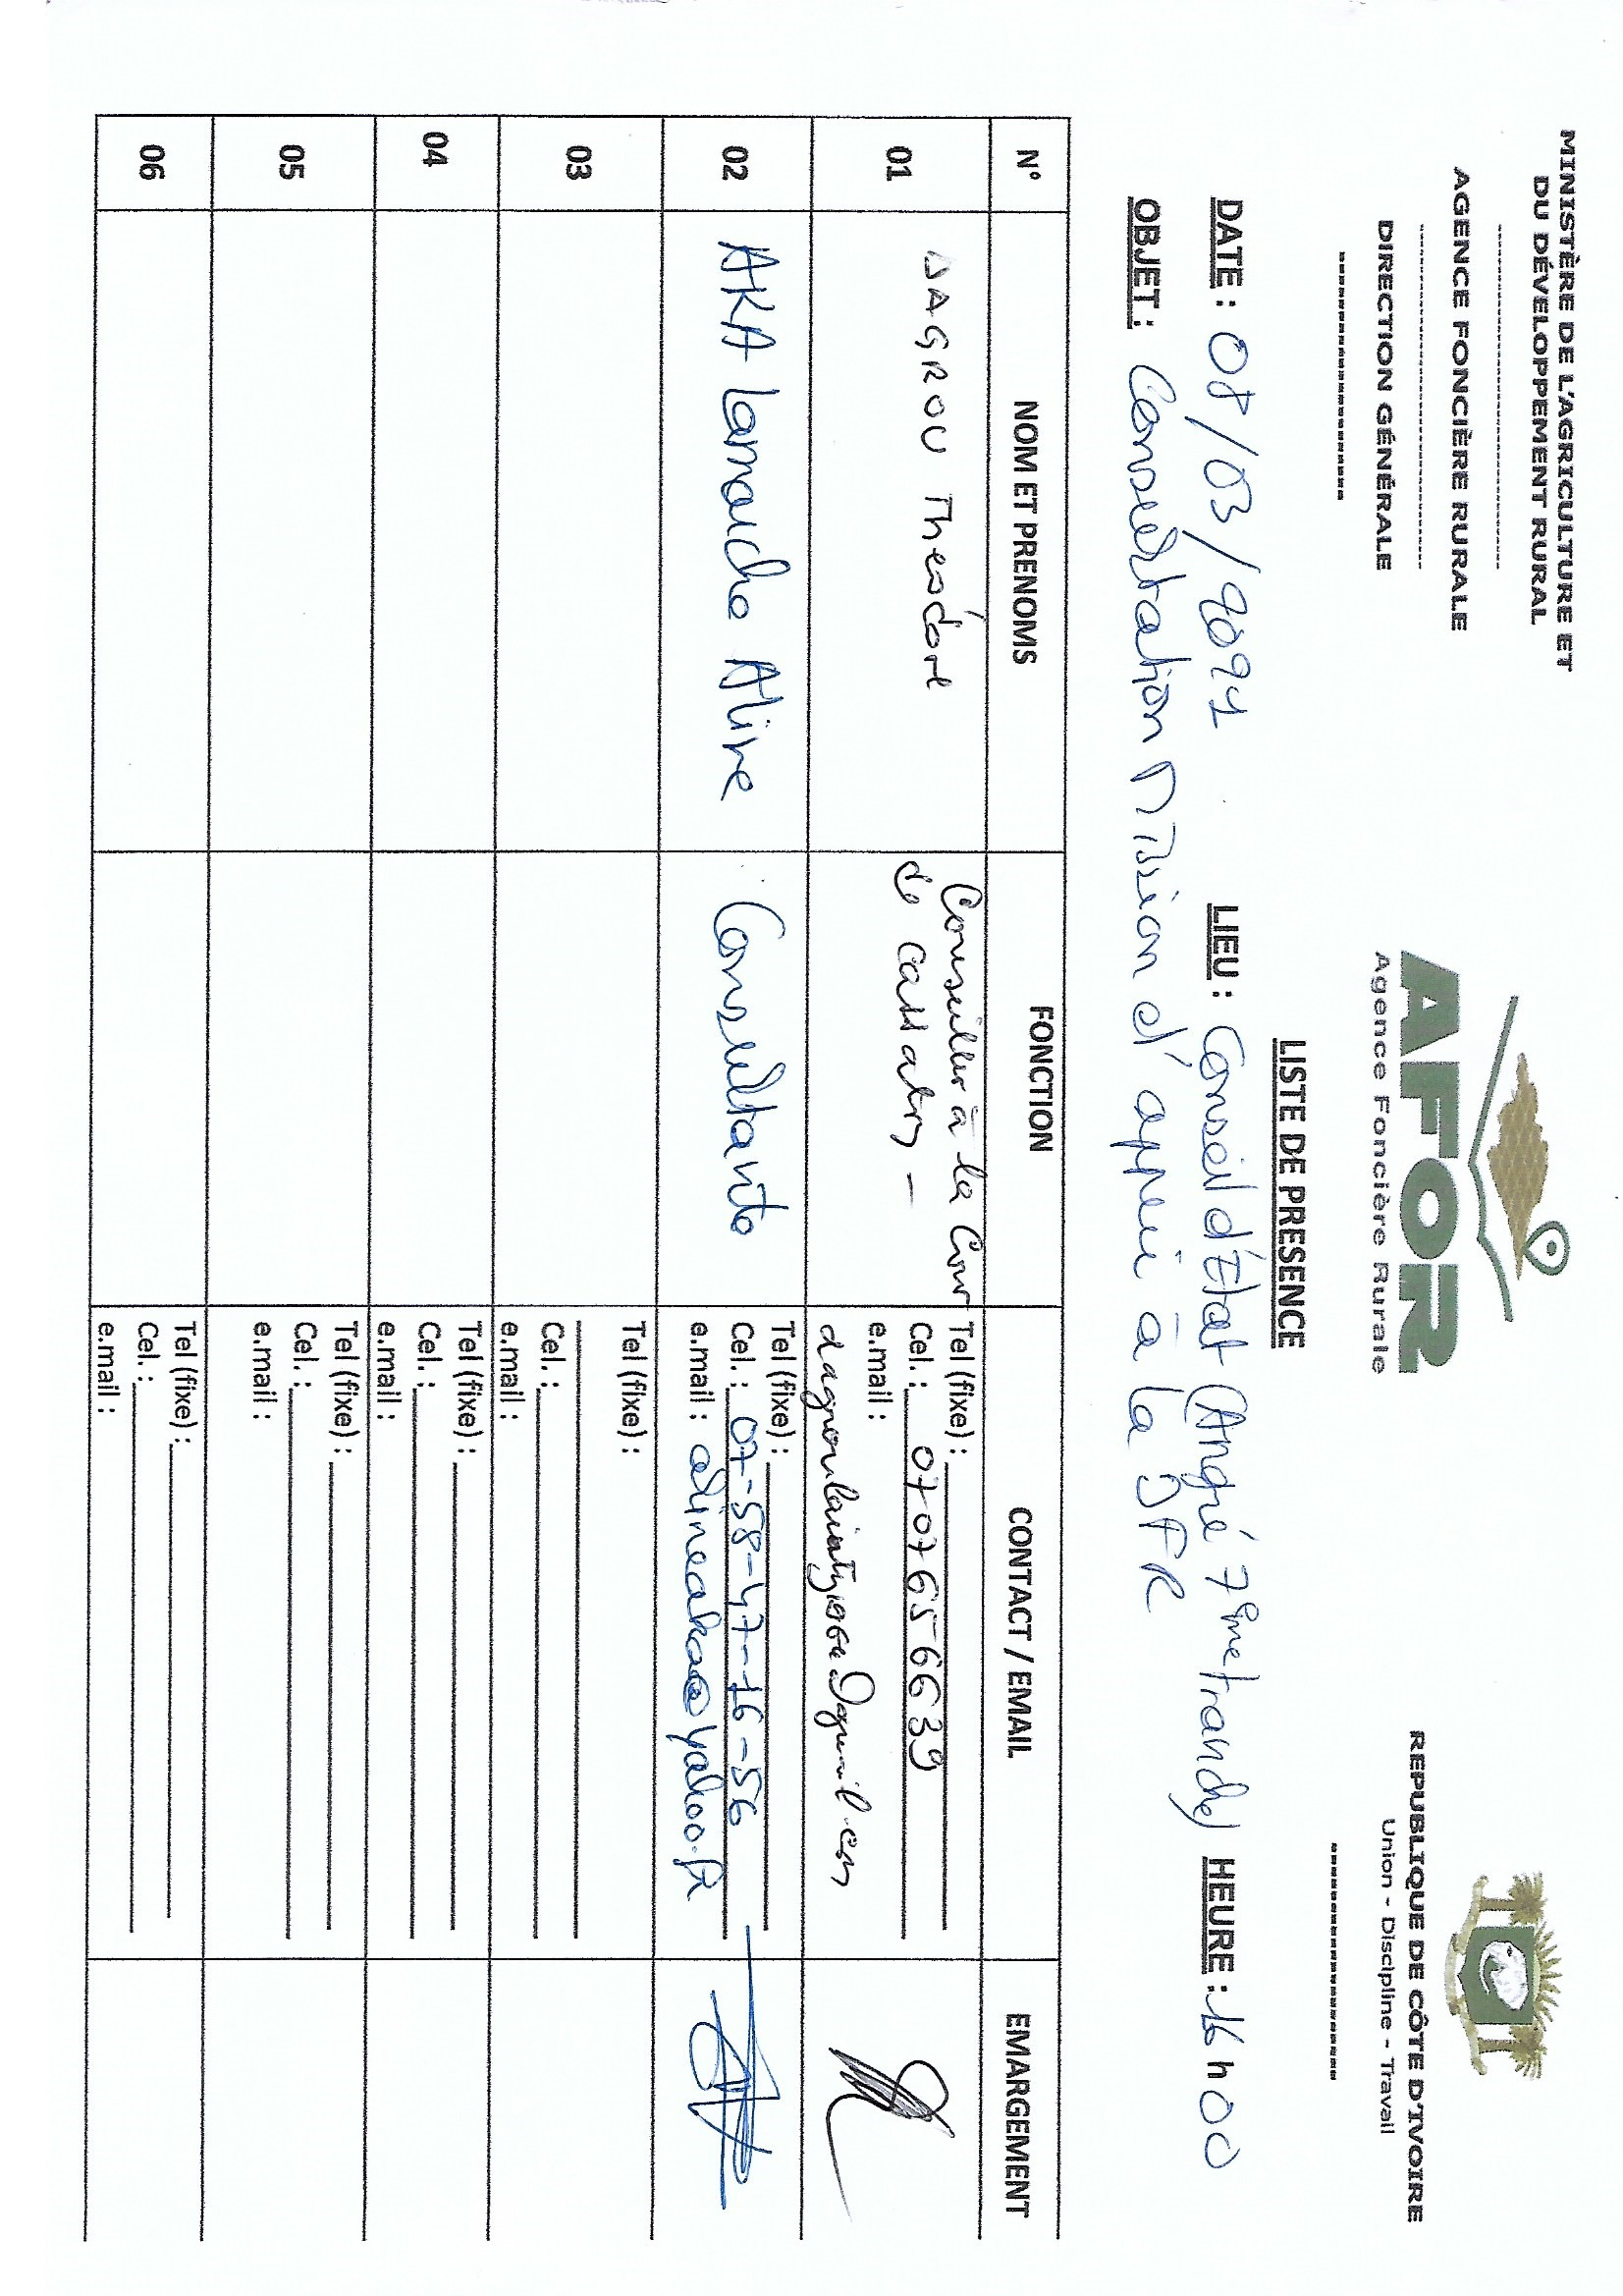 MINISTÈRE DE L'AGRICULTURE ET
DU DÉVELOPPEMENT RURAL
AGENCE FONCIÈRE RURALE
DIRECTION GÉNÉRALE
AFOR
Agence Foncière Rurale
REPUBLIQUE DE CÔTE D'IVOIRE
Union - Discipline - Travail
LISTE DE PRESENCE
DATE : 08/03/2021 LIEU : Conseil d'Etat (Angré 7ème tranche) HEURE : 16 h 00
OBJET : Consultation Mission d'appui à la DFR
N° NOM ET PRENOMS FONCTION CONTACT / EMAIL EMARGEMENT
01 DAGROU Théodore Conseiller à la Cour
de Cassation - Tel (fixe) :
Cel. : 0707656639
e.mail :
02 AKA Aline Consultante Tel (fixe) :
Cel. : 07-58-47-76-56
e.mail : alineaka@yahoo.fr
03 Tel (fixe) :
Cel. :
e.mail :
04 Tel (fixe) :
Cel. :
e.mail :
05 Tel (fixe) :
Cel. :
e.mail :
06 Tel (fixe) :
Cel. :
e.mail :